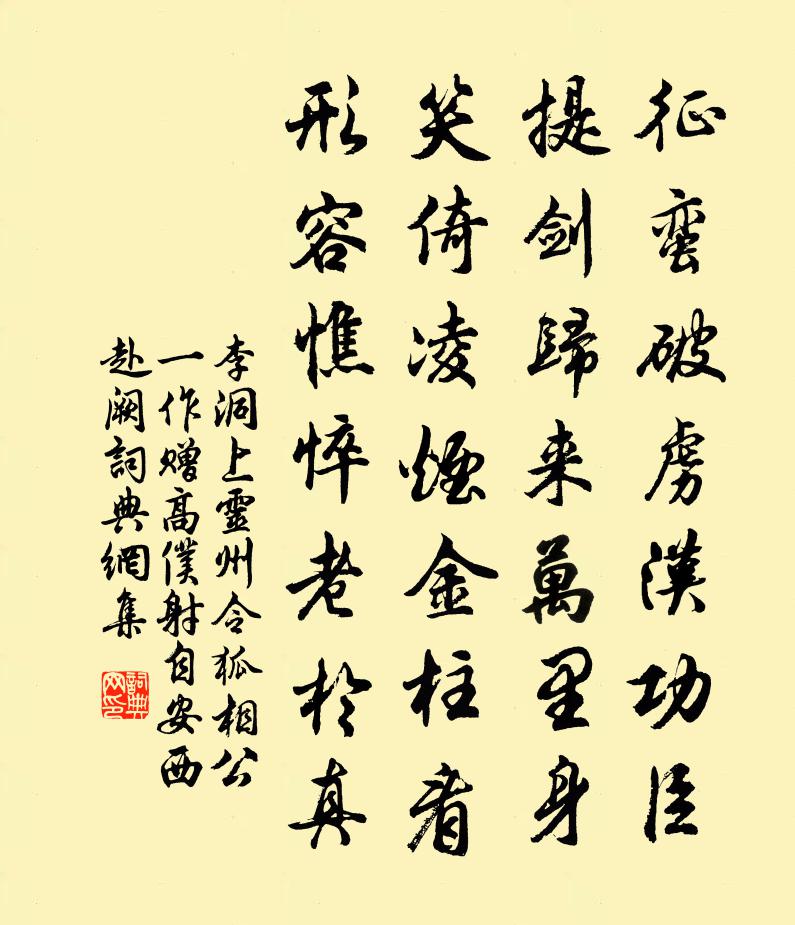 征蛮破虏漢功臣
提剑歸来萬里身
笑倚凌煙金柱看
形容憔悴老於真
李洞上靈州令狐相公
一作赠高僕射自安西
赴阙詞典網集
詞典
网印